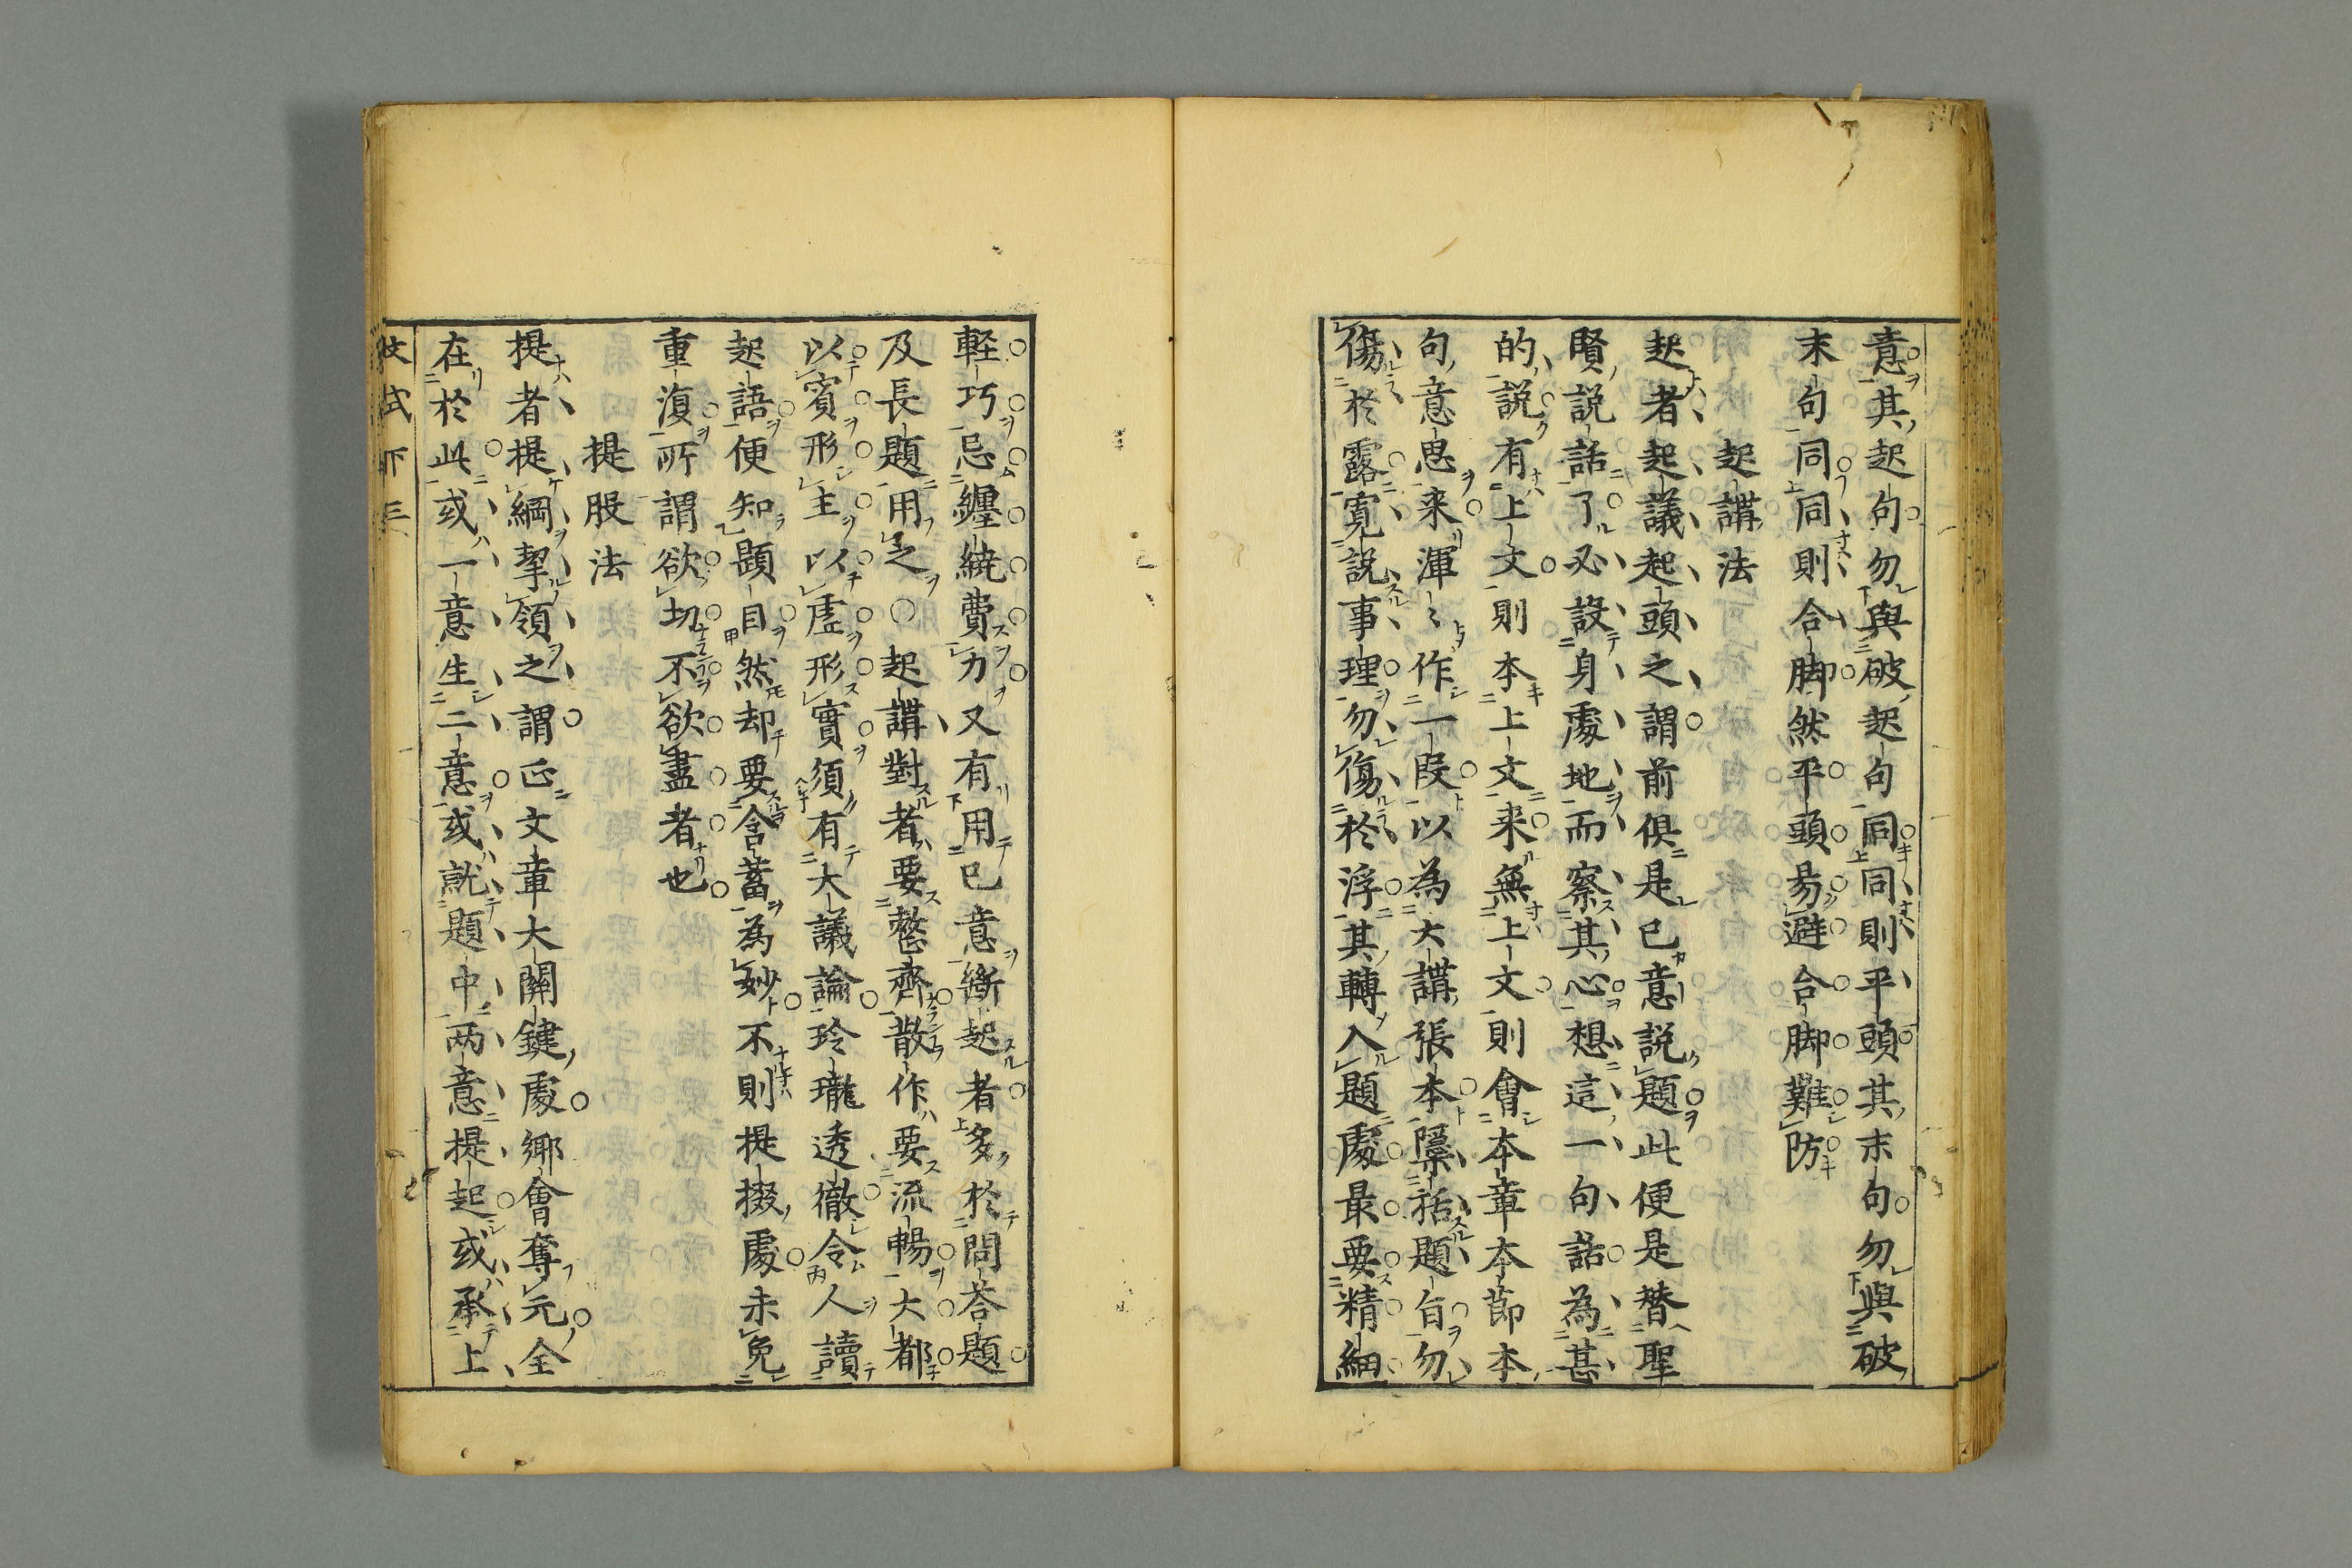 意其起句勿與破起句同同則平頭其末句勿與破
末句同同則合脚然平頭易避合脚難防
起講法
起者起議起頭之謂前俱是已意説題此便是替聖
賢説話了必設身處地而察其心想這一句話為甚
的説有上文則本上文来無上文則會本章本莭本
句意思来渾〻作一段以為大講張本隱括題旨勿
傷於露寛説事理勿傷於浮其轉入題處最要精細
軽巧忌纒繞費力又有用已意斷起者多於問荅題
及長題用之○起講對者要整齊散作要流暢大都
以賓形主以虚形實須有大議論玲瓏透徹令人讀
起語便知題目然却要含蓄為妙不則提掇處未免
重復所謂欲切不欲盡者也
提股法
提者提綱挈領之謂正文章大關鍵處郷會奪元全
在於此或一意生二意或就題中两意提起或承上
式下三